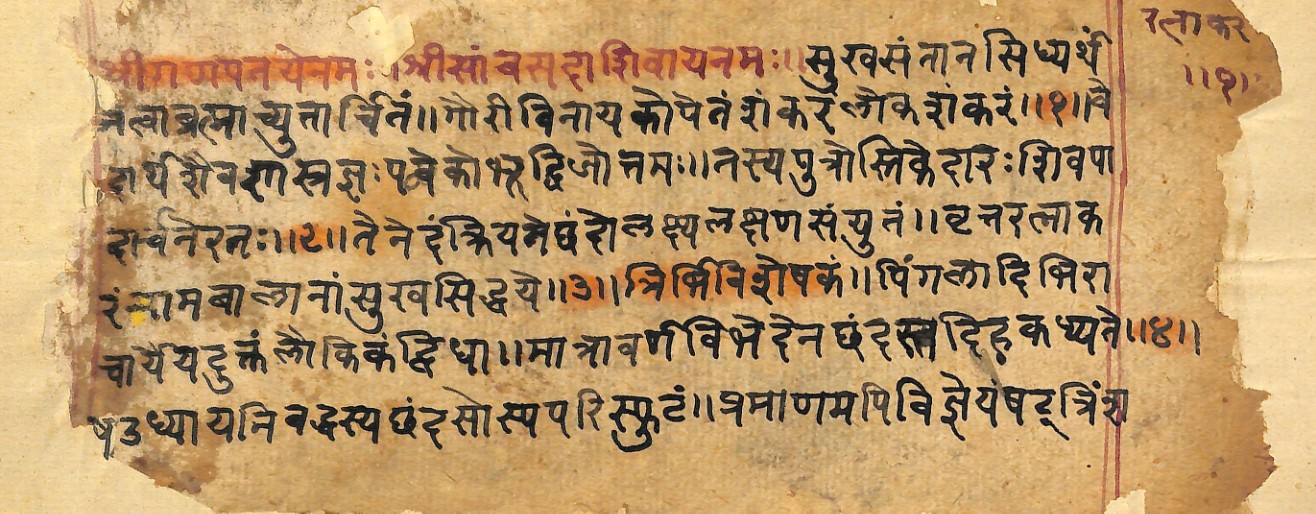 रत्नाकर
॥१॥
श्रीगणपतयेनमः॥श्रीसांबसदाशिवायनमः॥सुखसंतानसिध्यर्थं
नत्वाब्रह्माच्युतार्चितं॥गौरीविनायकोपेतंशंकरंलोकशंकरं॥१॥वे
दार्थशैवशास्त्रज्ञःपव्वेकोभूद्विजोत्तमः॥तस्यपुत्रोस्तिकेदारःशिवपा
दार्चनेरतः॥२॥तेनेदंक्रियतेछंदोलक्ष्यलक्षणसंयुतं॥वृत्तरत्नाक
रंनामबालानांसुखसिद्धये॥३॥त्रिभिर्विशेषकं॥पिंगलादिभिरा
चार्यैर्यदुक्तंलौकिकंद्विधा॥मात्रावर्णविभेदेनछंदस्तदिहकथ्यते॥४॥
षडध्यायनिबद्धस्यछंदसोस्यपरिस्फुटं॥प्रमाणमपिविज्ञेयंषट्त्रिंश